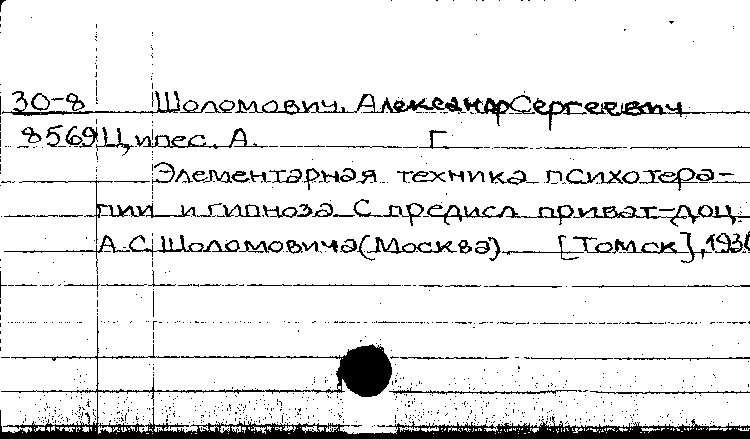 30-8 Шоломович, Александр Сергеевич
8569 Ципес. А. Г.
Элементарная техника психотера-
пии и гипноза С предисл приват-доц.
А.С. Шоломовича (Москва). [Томск], 1930